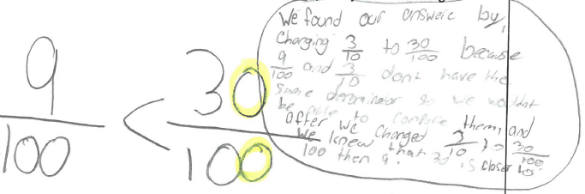 9/100 < 30/100
We found our answere by,
Changing 3/10 to 30/100 because
9/100 and 3/10 dont have the
same denominator so we wouldnt
be able to compare them, and
after we changed 3/10 to 30/100
We knew that 30 is closer to
100 then 9.